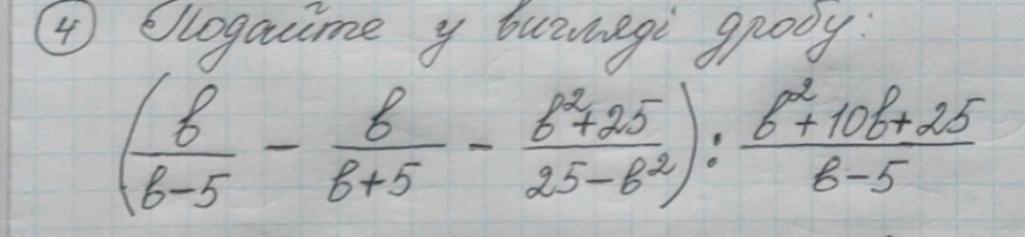 ④ Подайте у вигляді дробу:
(b/(b-5) - b/(b+5) - (b²+25)/(25-b²)) : (b²+10b+25)/(b-5)